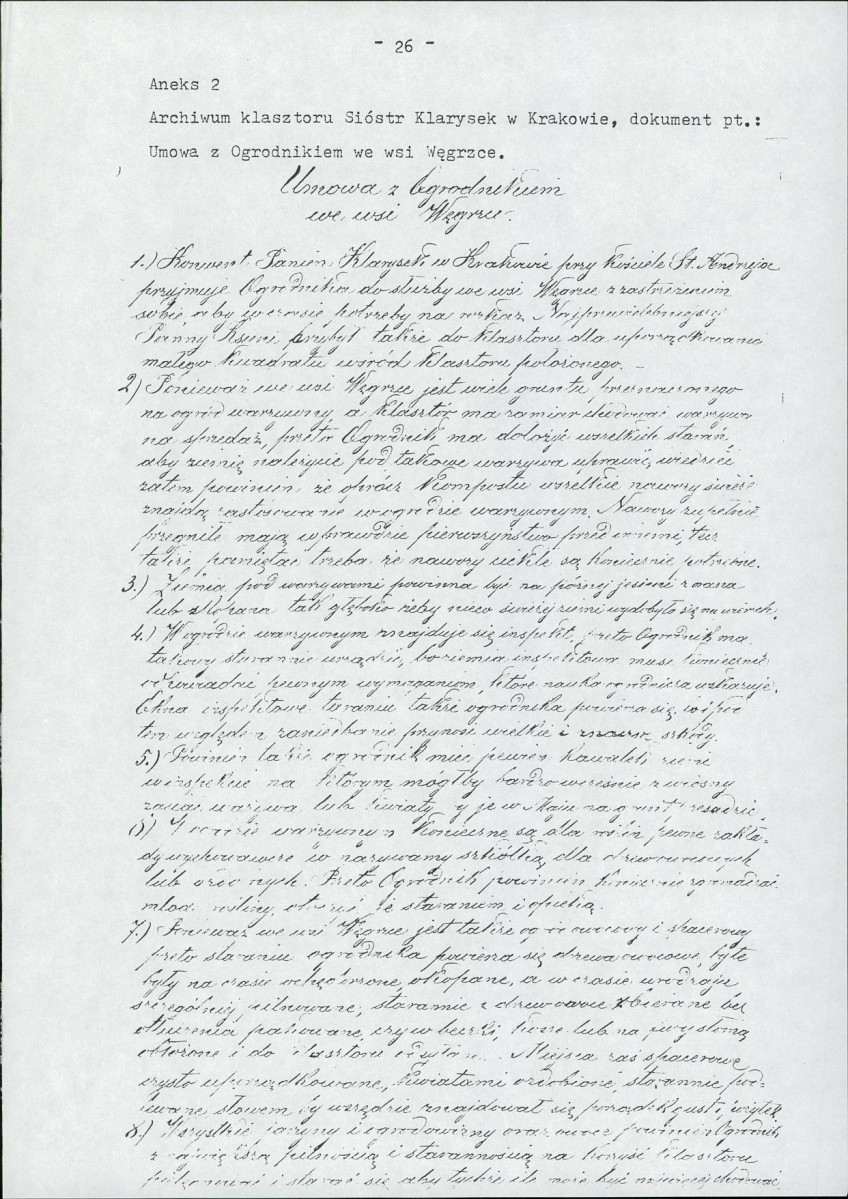 - 26 -
Aneks 2
Archiwum klasztoru Sióstr Klarysek w Krakowie, dokument pt.:
Umowa z Ogrodnikiem we wsi Węgrzce.
Umowa z Ogrodnikiem
we wsi Węgrzce.
1.) Konwent Panien Klarysek w Krakowie przy Kościele St. Andrzeja
przyjmuje Ogrodnika do służby we wsi Węgrzce z zastrzeżeniem
sobie aby w czasie potrzeby na rozkaz Najprzewielebniejszej
Panny Ksieni przybył także do klasztoru dla uporządkowania
małego kwadratu wśród klasztoru położonego. -
2) Ponieważ we wsi Węgrzce jest wiele gruntu, przeznaczonego
na ogród warzywny, a klasztór ma zamiar hodować warzywa
na sprzedaż, przeto Ogrodnik ma dołożyć wszelkich starań,
aby ziemię należycie pod takowe warzywa uprawić, wiedzieć
zatem powinien, że oprócz kompostu wszelkie nawozy świeże
znajdą zastosowanie w ogrodzie warzywnym. Nawozy zupełnie
przegniłe mają wprawdzie pierwszeństwo przed innemi, lecz
także pamiętać trzeba że nawozy ciekłe są koniecznie potrzebne.
3.) Ziemia pod warzywami powinna być na późnej jesieni zorana
lub skopana tak głęboko żeby nieco świeżej ziemi wydobyło się na wierzch.
4.) W ogrodzie warzywnym znajduje się inspekt, przeto Ogrodnik ma
takowy starannie urządzić, bo ziemia inspektowa musi koniecznie
odpowiadać pewnym wymaganiom, które nauka ogrodnicza wskazuje.
Okna inspektowe staraniu także ogrodnika powierza się, w
ten względzie zaniedbanie przynosi wielkie i znaczne szkody.
5.) Powinien także ogrodnik mieć pewien kawałek ziemi
w inspekcie na którym mógłby bardzo wcześnie z wiosny
zasiać warzywa lub kwiaty by je w Maju na grunt wysadzić.
6) W ogrodzie warzywnym konieczne są dla roślin pewne zakła-
dy wychowawcze co nazywamy szkółką, dla drzew owocowych
lub ozdobnych. Przeto Ogrodnik powinien koniecznie zgromadzać
młode rośliny, otoczyć je staraniem i opieką.
7.) Ponieważ we wsi Węgrzce jest także ogród owocowy i spacerowy
przeto staraniu ogrodnika powierza się drzewa owocowe, by te
były na czasie oczyszczone, okopane, a w czasie urodzaju
szczególniej pilnowane; starannie z drzew owoce zbierane bez
otłuczenia pakowane, czy w beczki, kosze lub na słomą
obłożone i do klasztoru odsyłane. Miejsca zaś spacerowe
czysto uporządkowane, kwiatami ozdobione, starannie pod-
lewane słowem by wszędzie znajdował się porządek, gust i użytek.
8.) Wszystkie jarzyny i ogrodowizny oraz owoce powinien Ogrodnik
z największą pilnością i starannością na korzyść klasztoru
pielęgnować i starać się aby tychże ile może być najwięcej dochować